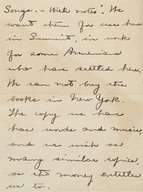 Songs. - With notes. We
want them for use here
in Summit, in work
for some Armenians
who have settled here.
We can not buy the
books in New York.
The copy we have
has words and music,
and we wish as
many similar copies
as the money entitles
us to.